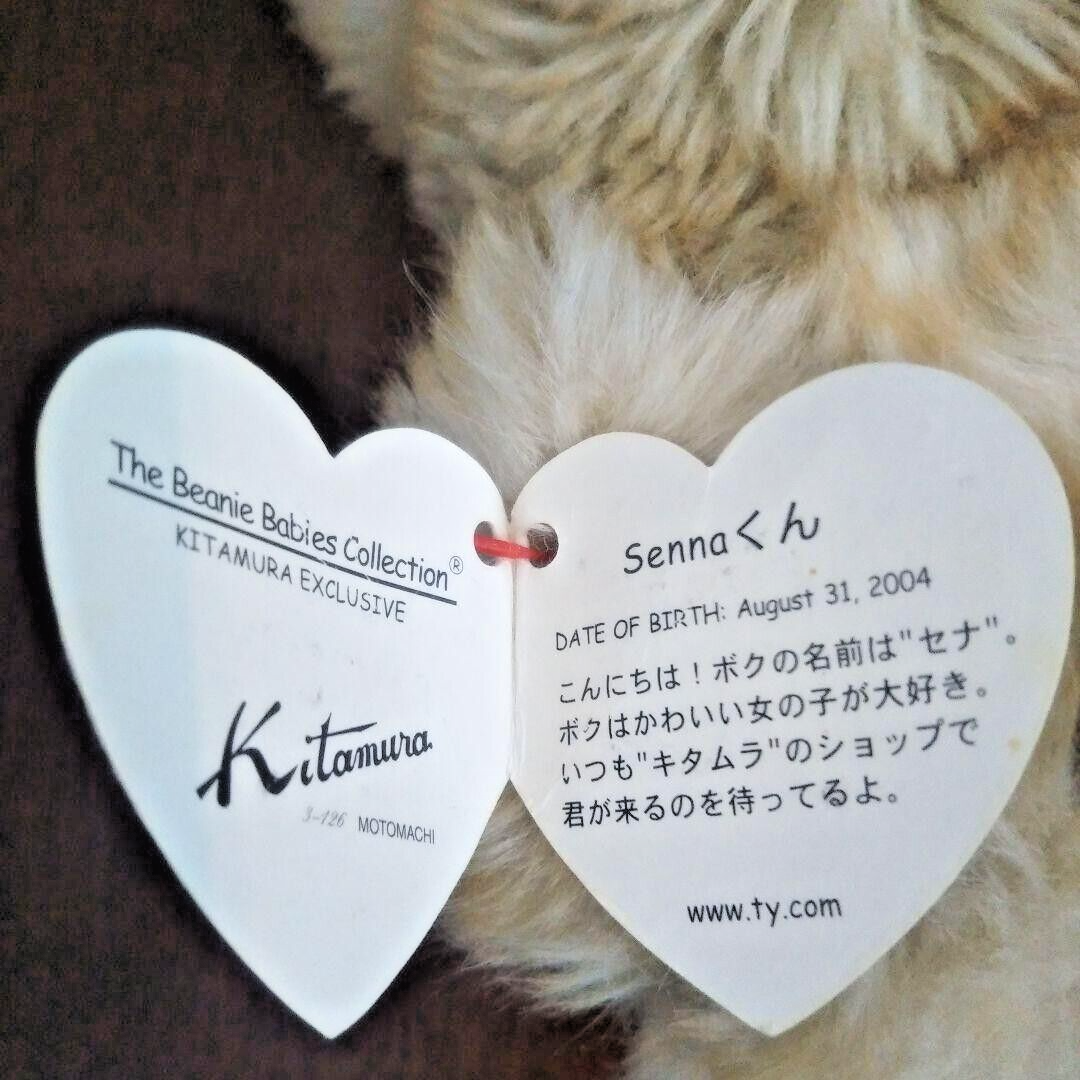 The Beanie Babies Collection®
KITAMURA EXCLUSIVE
Kitamura
3-126 MOTOMACHI
Sennaくん
DATE OF BIRTH: August 31, 2004
こんにちは！ボクの名前は"セナ"。
ボクはかわいい女の子が大好き。
いつも"キタムラ"のショップで
君が来るのを待ってるよ。
www.ty.com